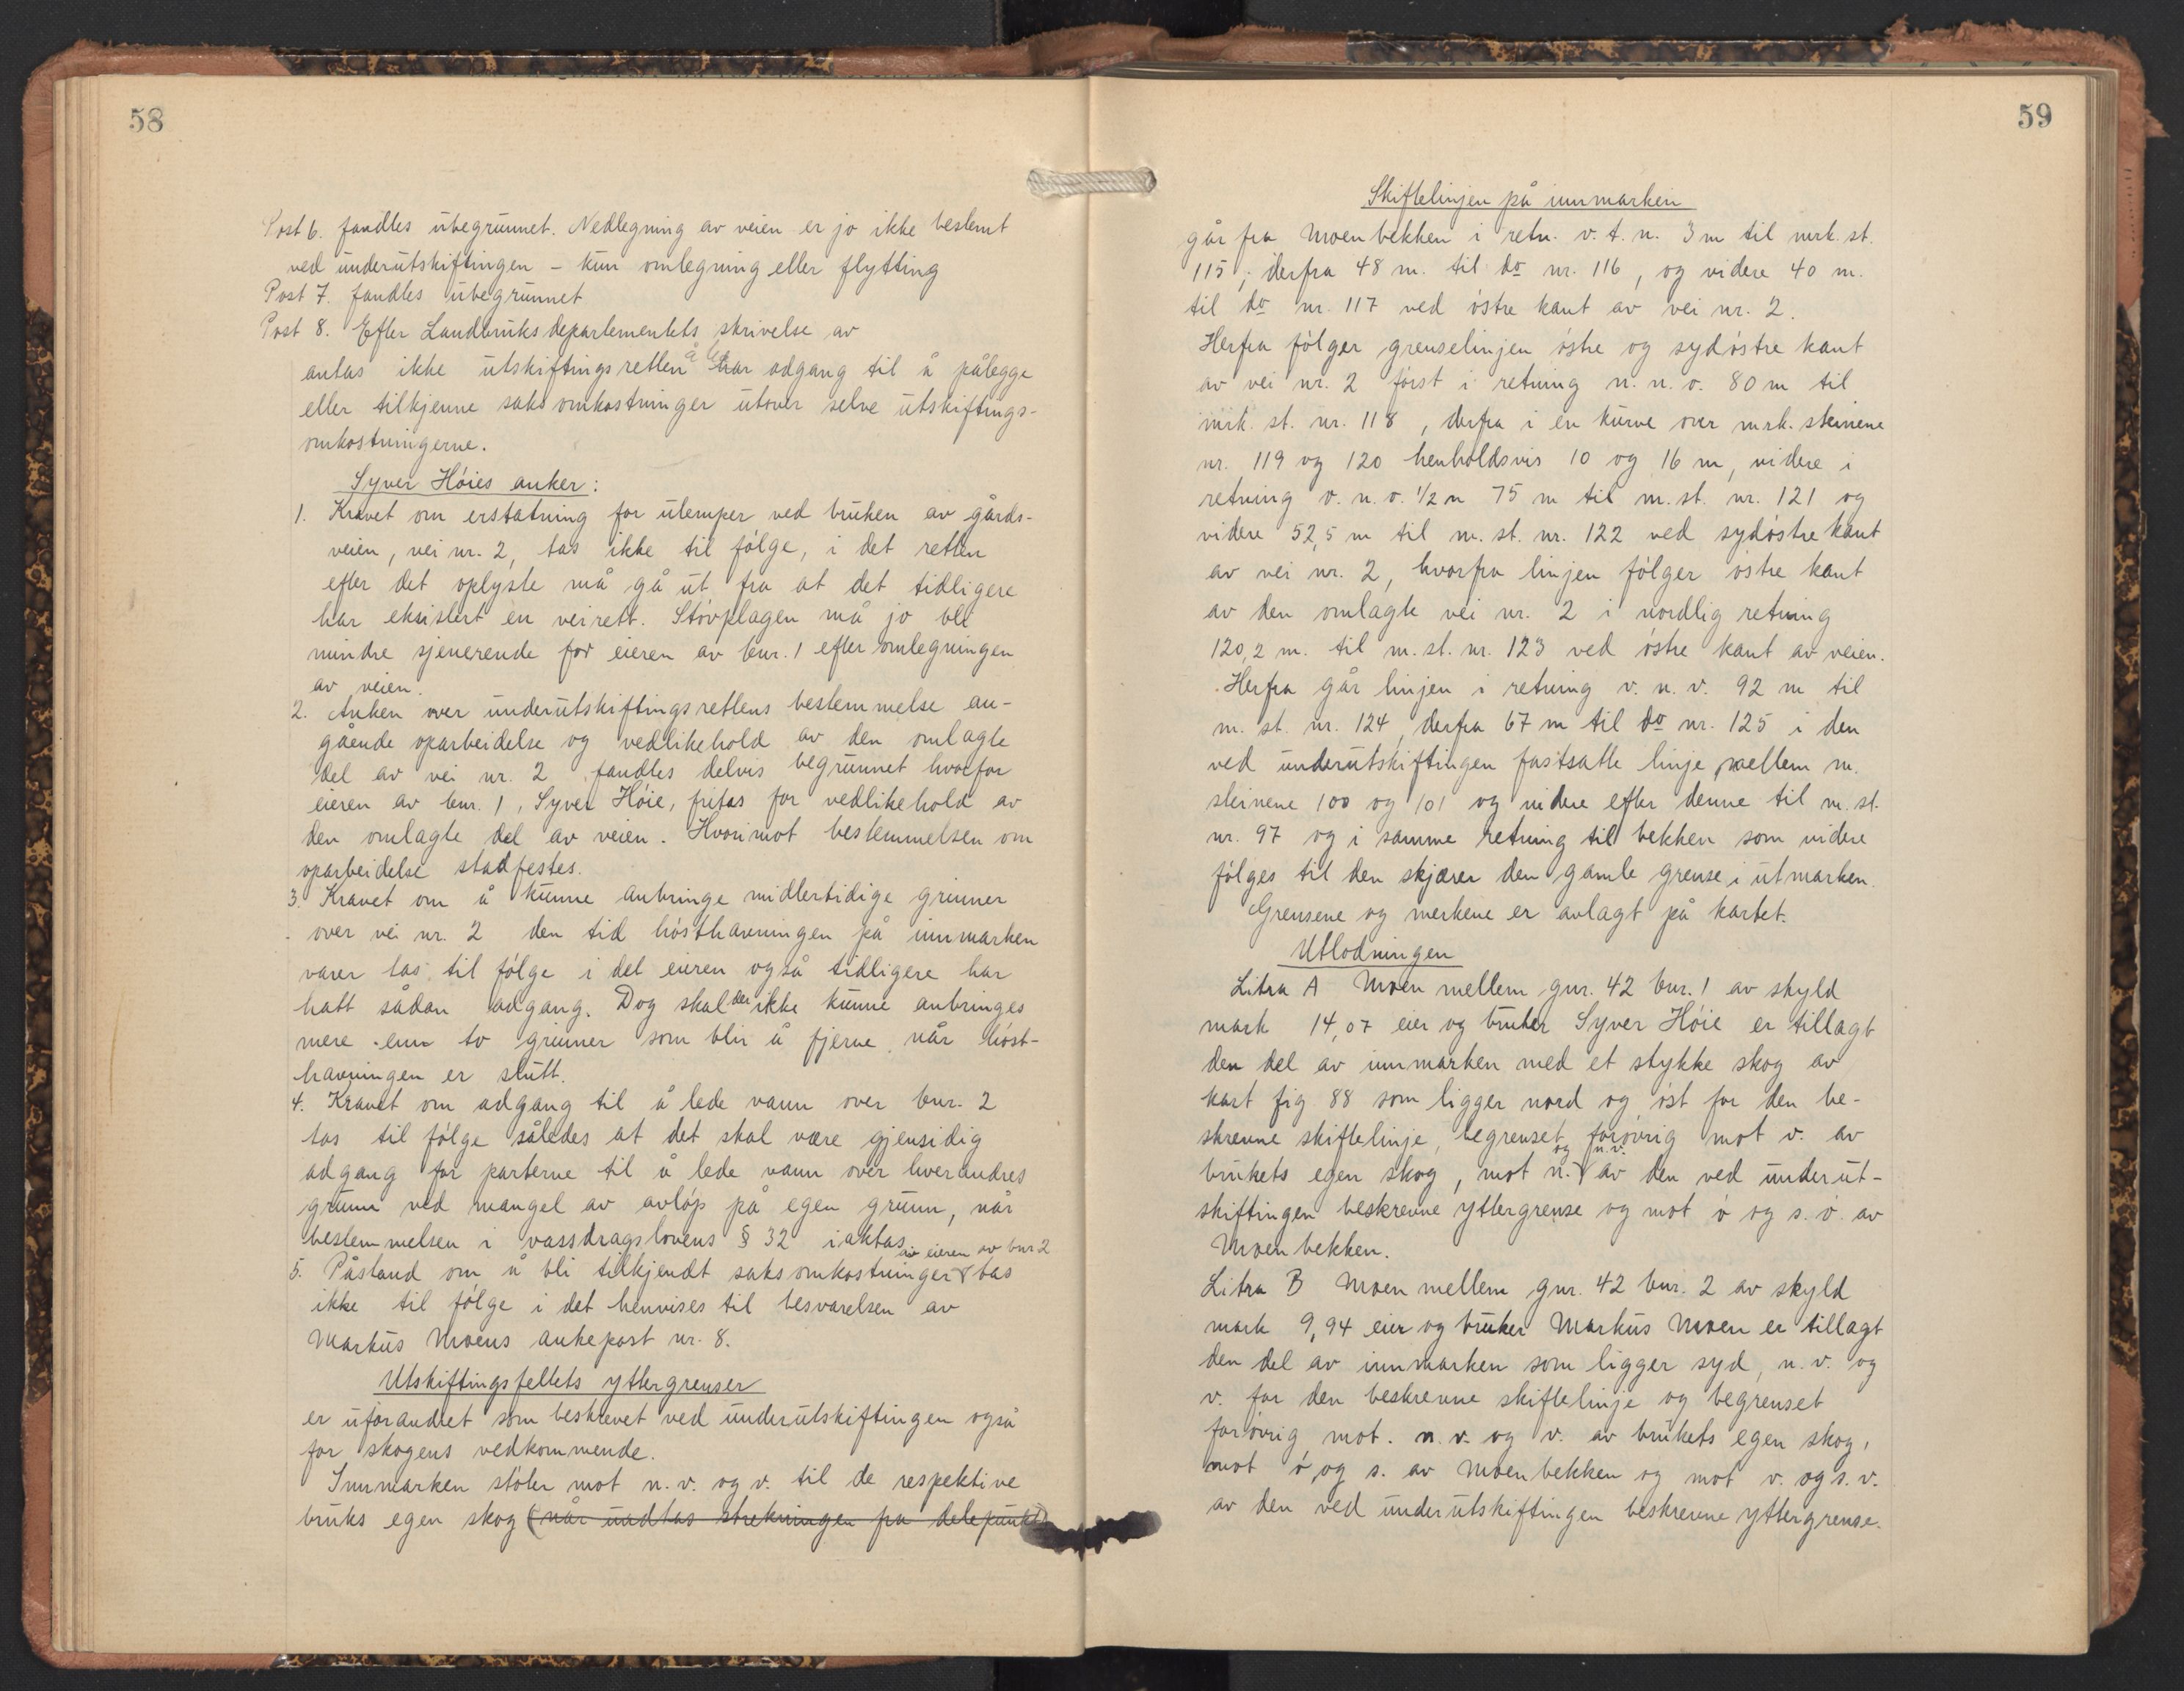 58
Post 6. fandtes ubegrunnet. Nedlegning av veien er jo ikke bestemt
ved underutskiftingen – kun omlegning eller flytting
Post 7. fandtes ubegrunnet
Post 8. Efter Landbruksdepartementets skrivelse av
antas ikke utskiftingsretten å har adgang til å pålegge
eller tilkjenne saksomkostninger utover selve utskiftings-
omkostningerne.
Syver Höies anker:
1. Kravet om erstatning for ulemper ved bruken av gårds-
veien, vei nr. 2, tas ikke til fölge, i det retten
efter det oplyste må gå ut fra at det tidligere
har eksistert en veirett. Stövplagen må jo bli
mindre sjenerende for eieren av bnr. 1 efter omlegningen
av veien.
2. Anken over underutskiftingsrettens bestemmelse an-
gående oparbeidelse og vedlikehold av den omlagte
del av vei nr. 2 fandtes delvis begrunnet hvorfor
eieren av bnr. 1, Syver Höie, fritas for vedlikehold av
den omlagte del av veien. Hvorimot bestemmelsen om
oparbeidelse stadfestes.
3. Kravet om å kunne anbringe midlertidige grinner
over vei nr. 2 den tid hösthavningen på innmarken
varer tas til fölge i det eieren også tidligere har
hatt sådan adgang. Dog skal der ikke kunne anbringes
mere enn to grinner som blir å fjerne når höst-
havningen er slutt.
4. Kravet om adgang til å lede vann over bnr. 2
tas til fölge således at det skal være gjensidig
adgang for parterne til å lede vann over hverandres
grunn ved mangel av avlöp på egen grunn, når
bestemmelsen i vassdragslovens § 32 iaktas.
5. Påstand om å bli tilkjendt saksomkostninger av eieren av bnr 2 tas
ikke til fölge i det henvises til besvarelsen av
Markus Moens ankepost nr. 8.
Utskiftingsfeltets yttergrenser
er uforandret som beskrevet ved underutskiftingen også
for skogens vedkommende.
Innmarken stöter mot n.v. og v. til de respektive
bruks egen skog (når undtas strekningen fra delepunkt)
59
Skiftelinjen på innmarken
går fra Moenbekken i retn. v.t.n. 3 m til mrk. st.
115, derfra 48 m. til do nr. 116, og videre 40 m.
til do nr. 117 ved östre kant av vei nr. 2.
Herfra fölger grenselinjen östre og sydöstre kant
av vei nr. 2 först i retning n.n.ö. 80 m til
mrk. st. nr. 118, derfra i en kurve over mrk. steinene
nr. 119 og 120 henholdsvis 10 og 16 m, videre i
retning ö.n.ö. 1/2 n 75 m til m.st. nr. 121 og
videre 52,5 m til m. st. nr. 122 ved sydöstre kant
av vei nr. 2, hvorfra linjen fölger östre kant
av den omlagte vei nr. 2 i nordlig retning
120,2 m. til m.st. nr. 123 ved östre kant av veien.
Herfra går linjen i retning v.n.v. 92 m til
m. st. nr. 124, derfra 67 m til do nr. 125 i den
ved underutskiftingen fastsatte linje mellem m.
steinene 100 og 101 og videre efter denne til m. st.
nr. 97 og i samme retning til bekken som videre
fölges til den skjærer den gamle grense i utmarken.
Grensene og merkene er avlagt på kartet.
Utlodningen
Litra A Moen mellem gnr. 42 bnr. 1 av skyld
mark 14,07 eier og bruker Syver Höie er tillagt
den del av innmarken med et stykke skog av
kart fig 88 som ligger nord og öst for den be-
skrevne skiftelinje, begrenset forövrig mot v. av
brukets egen skog, mot n. og n.v. av den ved underut-
skiftingen beskrevne yttergrense og mot ö og s.ö. av
Moenbekken.
Litra B Moen mellem gnr. 42 bnr. 2 av skyld
mark 9,94 eier og bruker Markus Moen er tillagt
den del av innmarken som ligger syd, n.v. og
v. for den beskrevne skiftelinje og begrenset
forövrig mot. n.v. og v. av brukets egen skog,
mot ö og s. av Moenbekken og mot v. og s.v.
av den ved underutskiftingen beskrevne yttergrense.